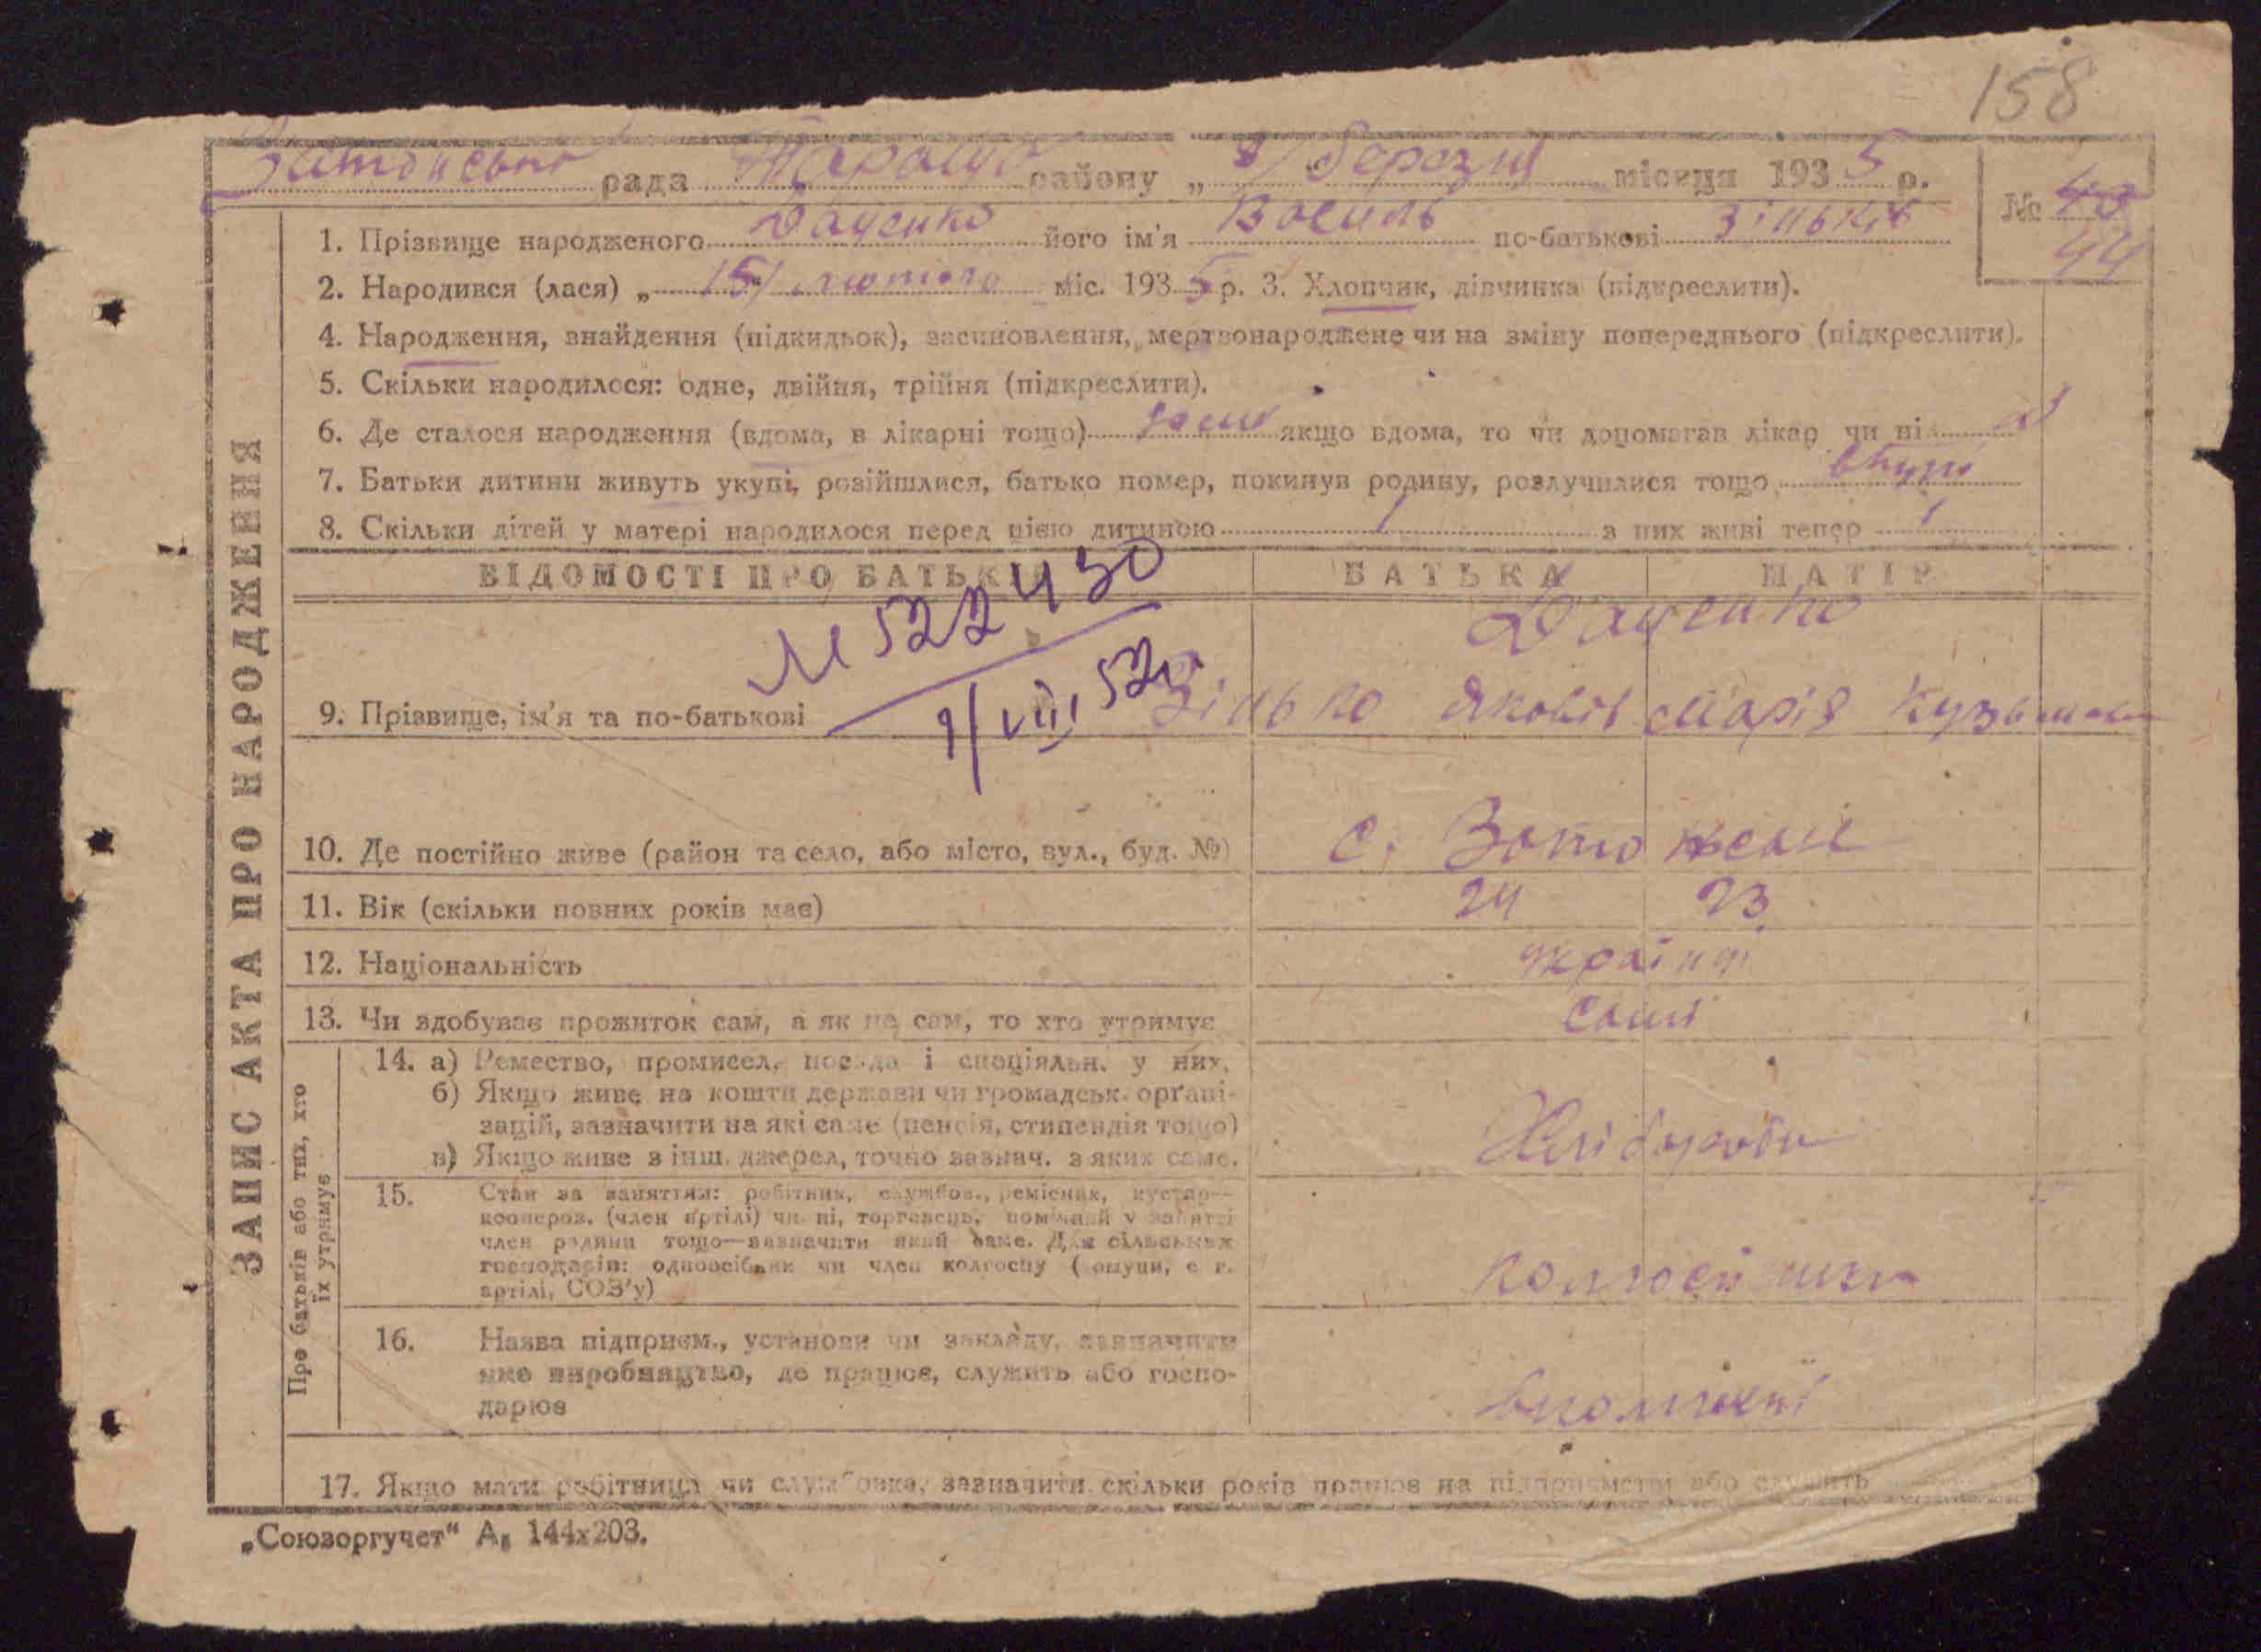 158
Затонська рада Тараща району „ 8/ березня місяця 1935 р.
№ 43
44
ЗАПИС АКТА ПРО НАРОДЖЕННЯ
1. Прізвище народженого Даценко його ім'я Василь по-батькові Зіньків
2. Народився (лася) „ 15/ лютого міс. 1935 р. 3. Хлопчик, дівчинка (підкреслити).
4. Народження, знайдення (підкидьок), засиновлення, мертвонароджене чи на зміну попереднього (підкреслити).
5. Скільки народилося: одне, двійня, трійня (підкреслити).
6. Де сталося народження (вдома, в лікарні тощо) якщо вдома, то чи допомагав лікар чи ні
7. Батьки дитини живуть укупі, розійшлися, батько помер, покинув родину, розлучилися тощо вкупі
8. Скільки дітей у матері народилося перед цією дитиною 1 з них живі тепер 1
ВІДОМОСТІ ПРО БАТЬКІВ БАТЬКА МАТІР
522430
9/VIII 52
Даценко
9. Прізвище, ім'я та по-батькові Зінько Яковів Марія
10. Де постійно живе (район та село, або місто, вул., буд. №) с.
11. Вік (скільки повних років має) 24 23
12. Національність українці
13. Чи здобуває прожиток сам, а як не сам, то хто утримує самі
Про батьків або тих, хто їх утримує
14. а) Ремество, промисел, посада і спеціяльн. у них.
б) Якщо живе на кошти держави чи громадськ. орґані-
зацій, зазначити на які саме (пенсія, стипендія тощо) Хлібороби
в) Якщо живе з інш. джерел, точно зазнач. з яких саме.
15. Стан за заняттям: робітник, службов., ремісник, кустар—
кооперов. (член артілі) чи ні, торговець, помічний у занятті
член родини тощо—зазначити який саме. Для сільських
господарів: одноосібник чи член колгоспу (комуни, с. г.
артілі, СОЗ'у) колгоспники
16. Назва підприєм., установи чи закладу, зазначити
яке виробництво, де працює, служить або госпо- вколгоспі
дарює
17. Якщо мати робітниця чи службовка, зазначити скільки років працює на підприємстві або служить
„Союзоргучет“ А₅ 144х203.